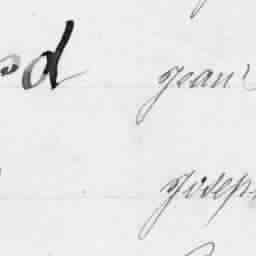 d jean
josep